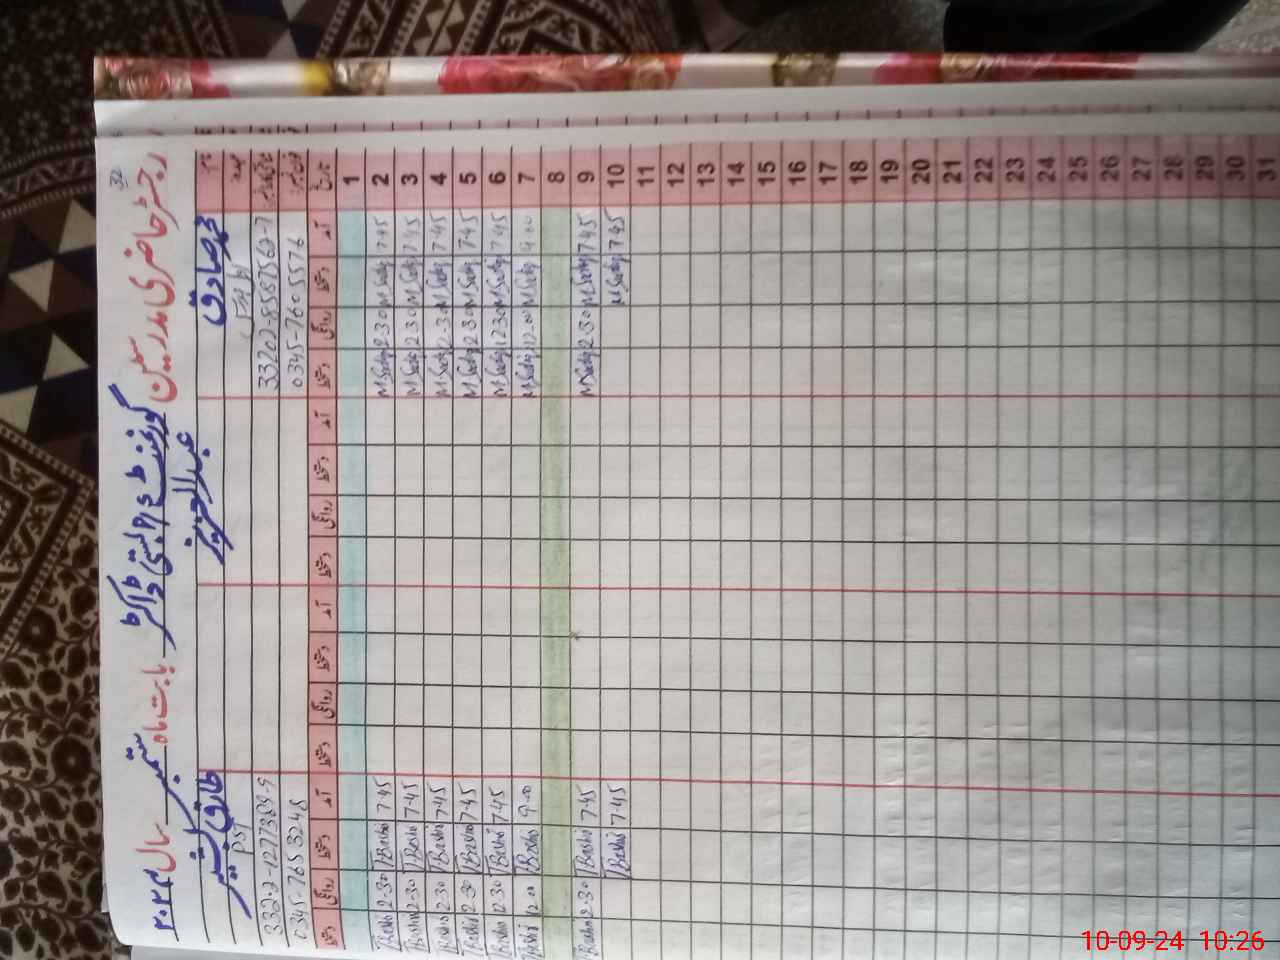 32
رجسٹر حاضری مدرسین گورنمنٹ بستی ڈاکٹر بابت ماہ ستمبر سال ۲۰۲۴
نام محمد صادق عبدالعزیز طارق بشیر
عہدہ PST
33202-8587562-7 33202-1277389-9
0345-7605576 0345-7653248
تاریخ آمد دستخط روانگی دستخط آمد دستخط روانگی دستخط آمد دستخط روانگی دستخط آمد دستخط روانگی دستخط
1
2 7.45 M Sadiq 2.30 M Sadiq 7.45 TBashir 2.30 TBashir
3 7.45 M Sadiq 2.30 M Sadiq 7.45 TBashir 2.30 TBashir
4 7.45 M Sadiq 2.30 M Sadiq 7.45 TBashir 2.30 TBashir
5 7.45 M Sadiq 2.30 M Sadiq 7.45 TBashir 2.30 TBashir
6 7.45 M Sadiq 12.30 M Sadiq 7.45 TBashir 12.30 TBashir
7 9.00 M Sadiq 12.00 M Sadiq 9.00 TBashir 12.00 TBashir
8
9 7.45 M Sadiq 2.30 M Sadiq 7.45 TBashir 2.30 TBashir
10 7.45 M Sadiq 7.45 TBashir
11
12
13
14
15
16
17
18
19
20
21
22
23
24
25
26
27
28
29
30
31
10-09-24 10:26